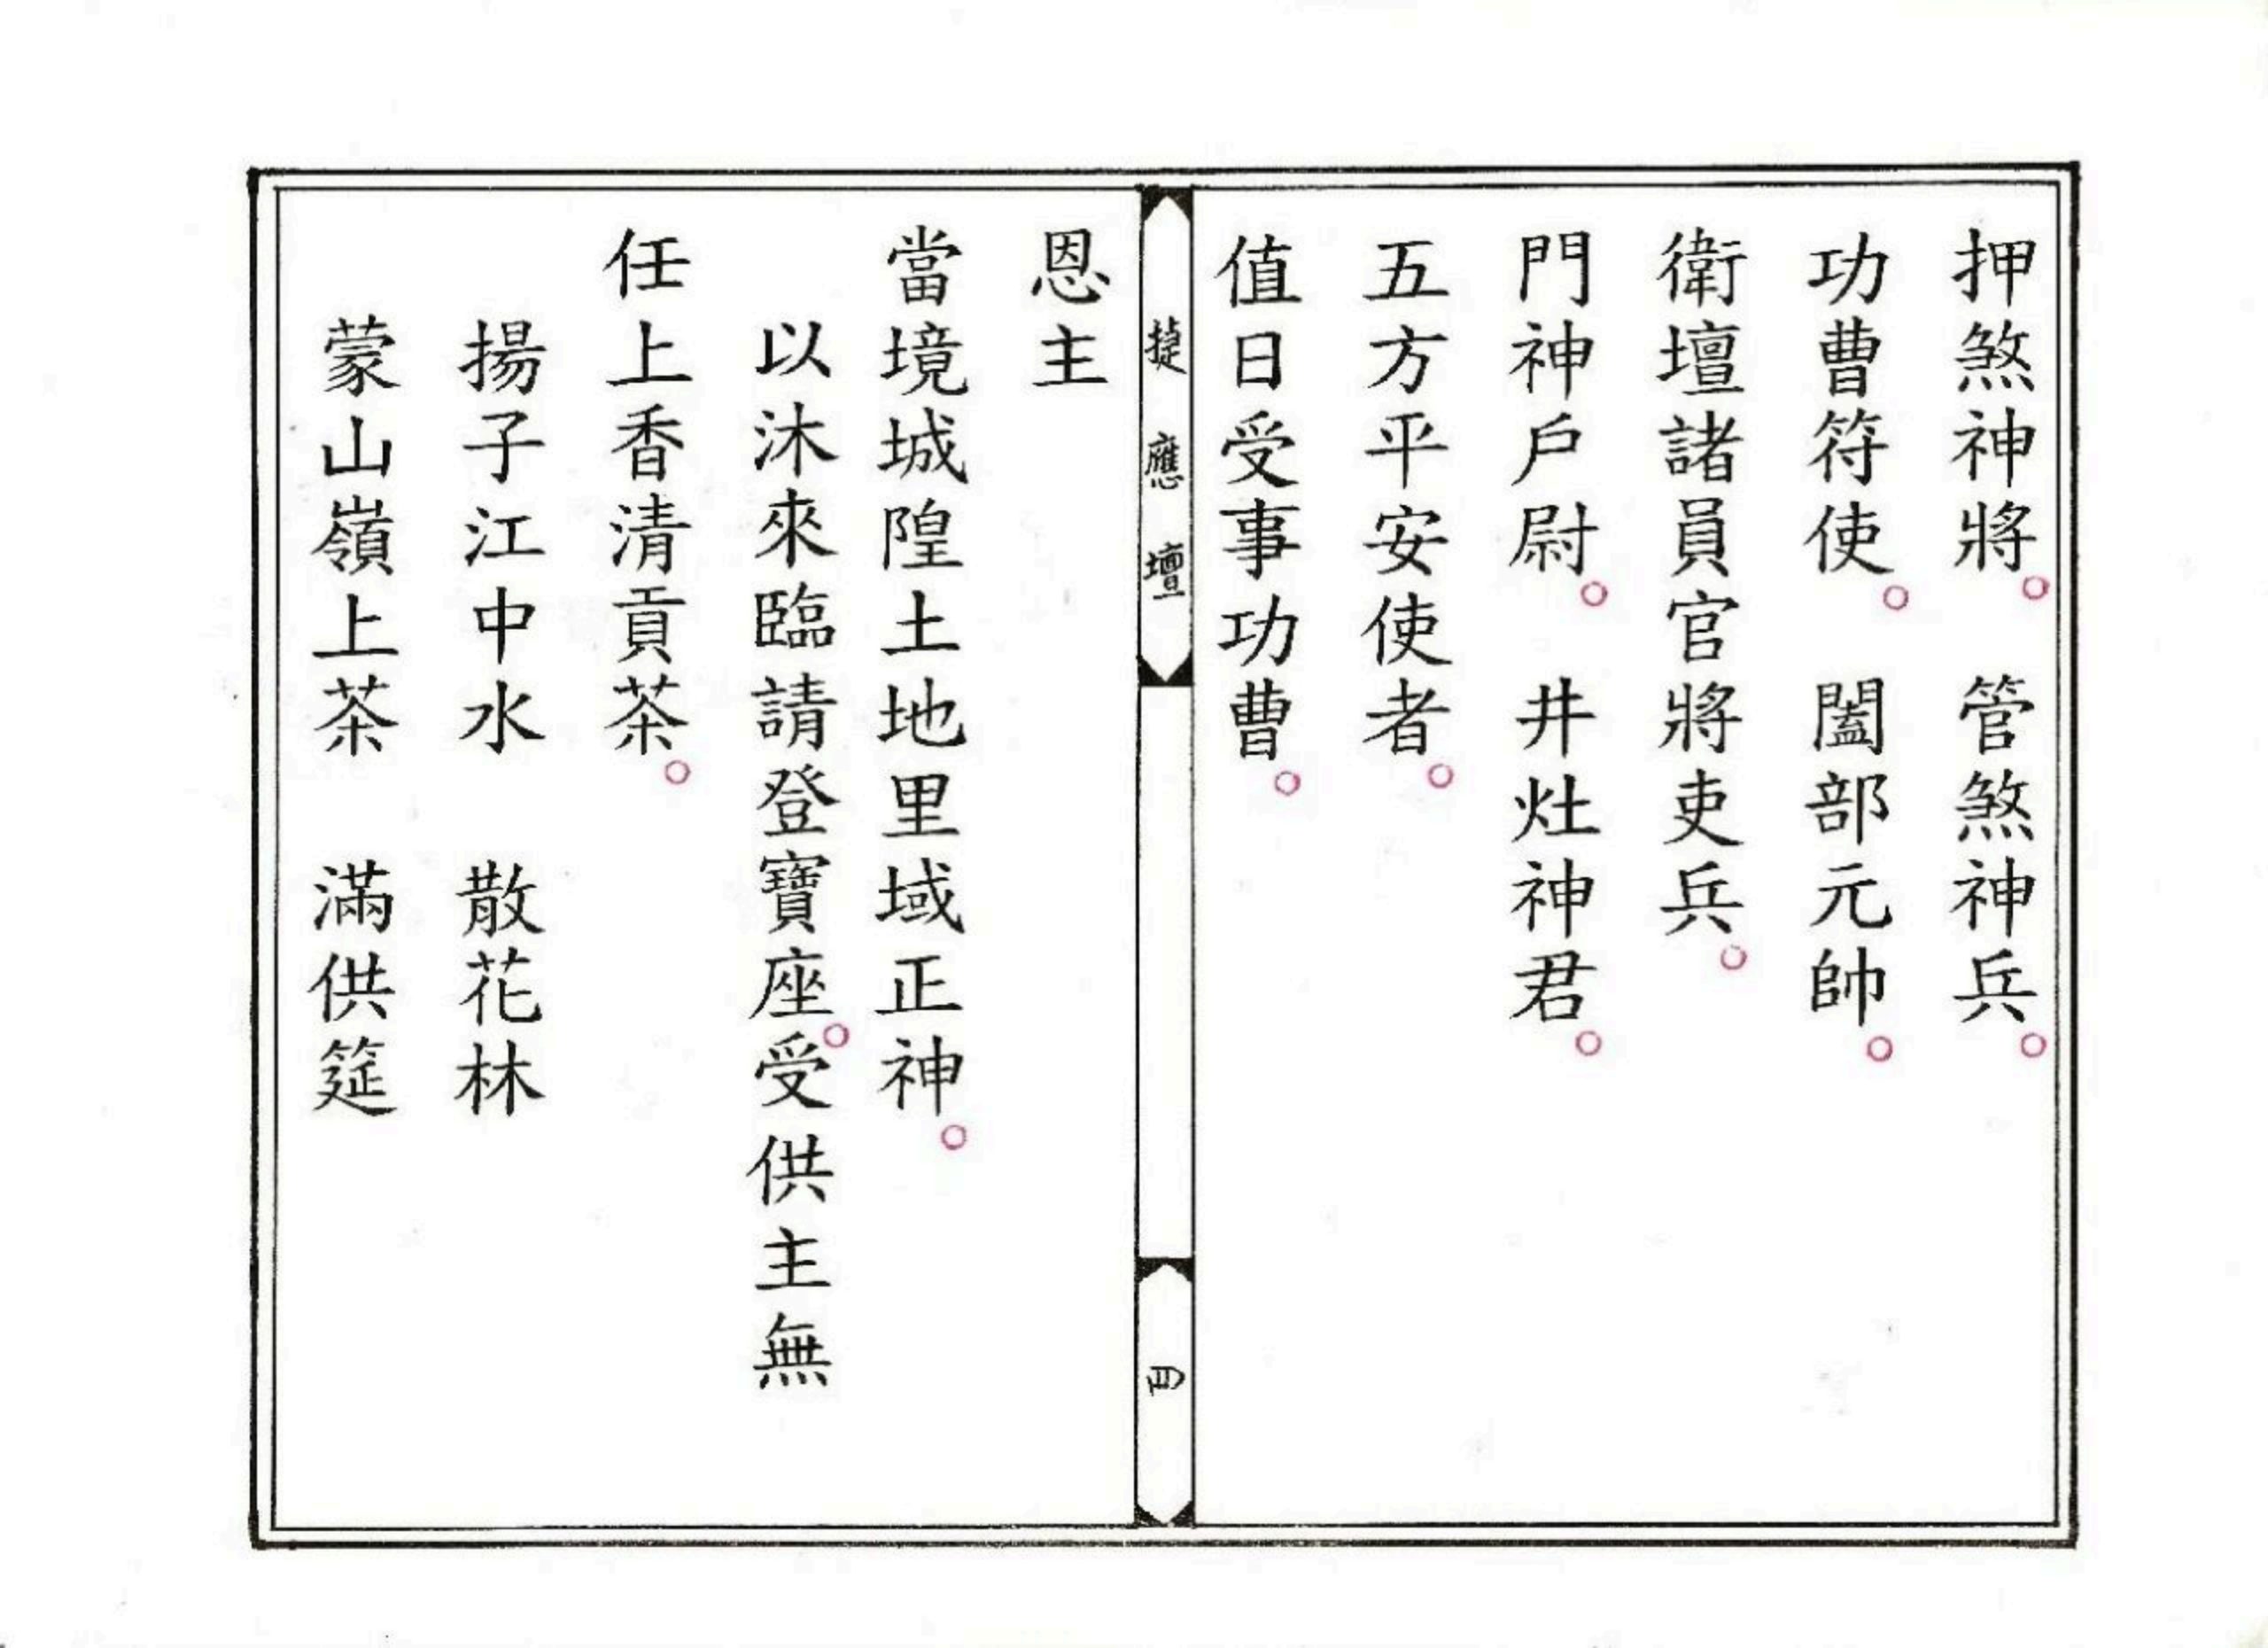 押煞神將。 管煞神兵。
功曹符使。 闔部元帥。
衛壇諸員官將吏兵。
門神戶尉。 井灶神君。
五方平安使者。
值日受事功曹。
捷應壇
頁
恩主
當境城隍土地里域正神。
以沐來臨請登寶座。受供主無
任上香清貢茶。
揚子江中水 散花林
蒙山嶺上茶 滿供筵